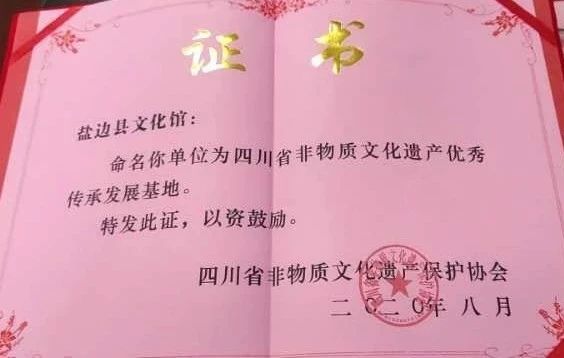 证书
盐边县文化馆：
命名你单位为四川省非物质文化遗产优秀
传承发展基地。
特发此证，以资鼓励。
四川省非物质文化遗产保护协会
二〇二〇年八月